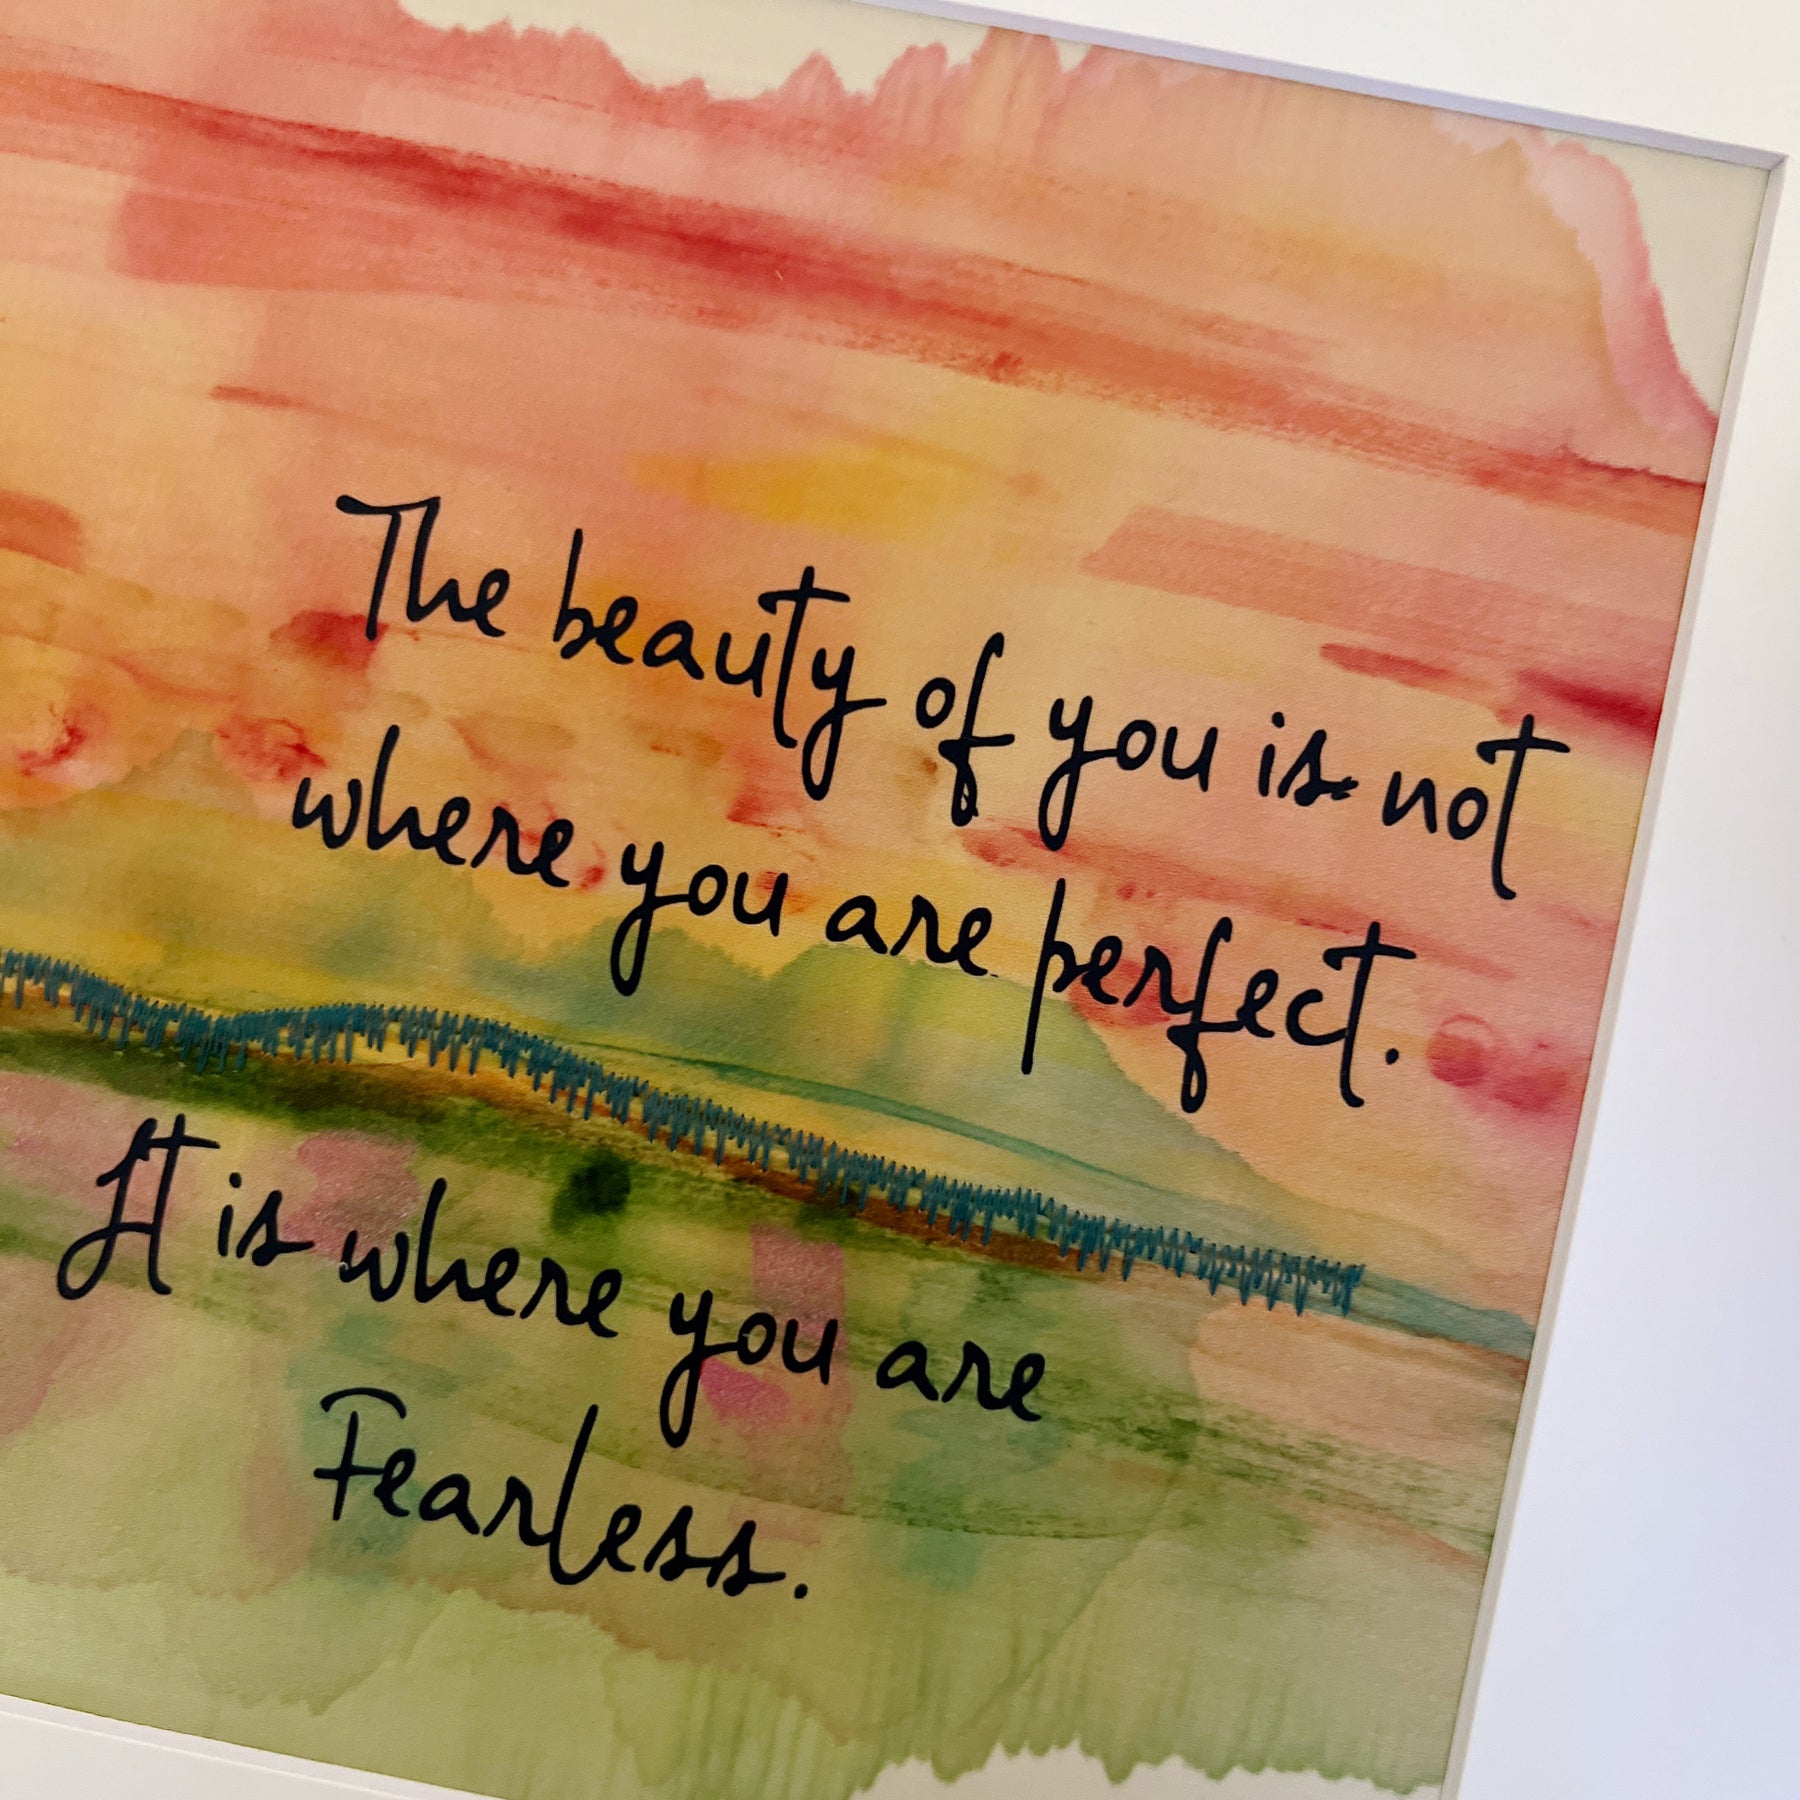 The beauty of you is not
where you are perfect.
It is where you are
Fearless.